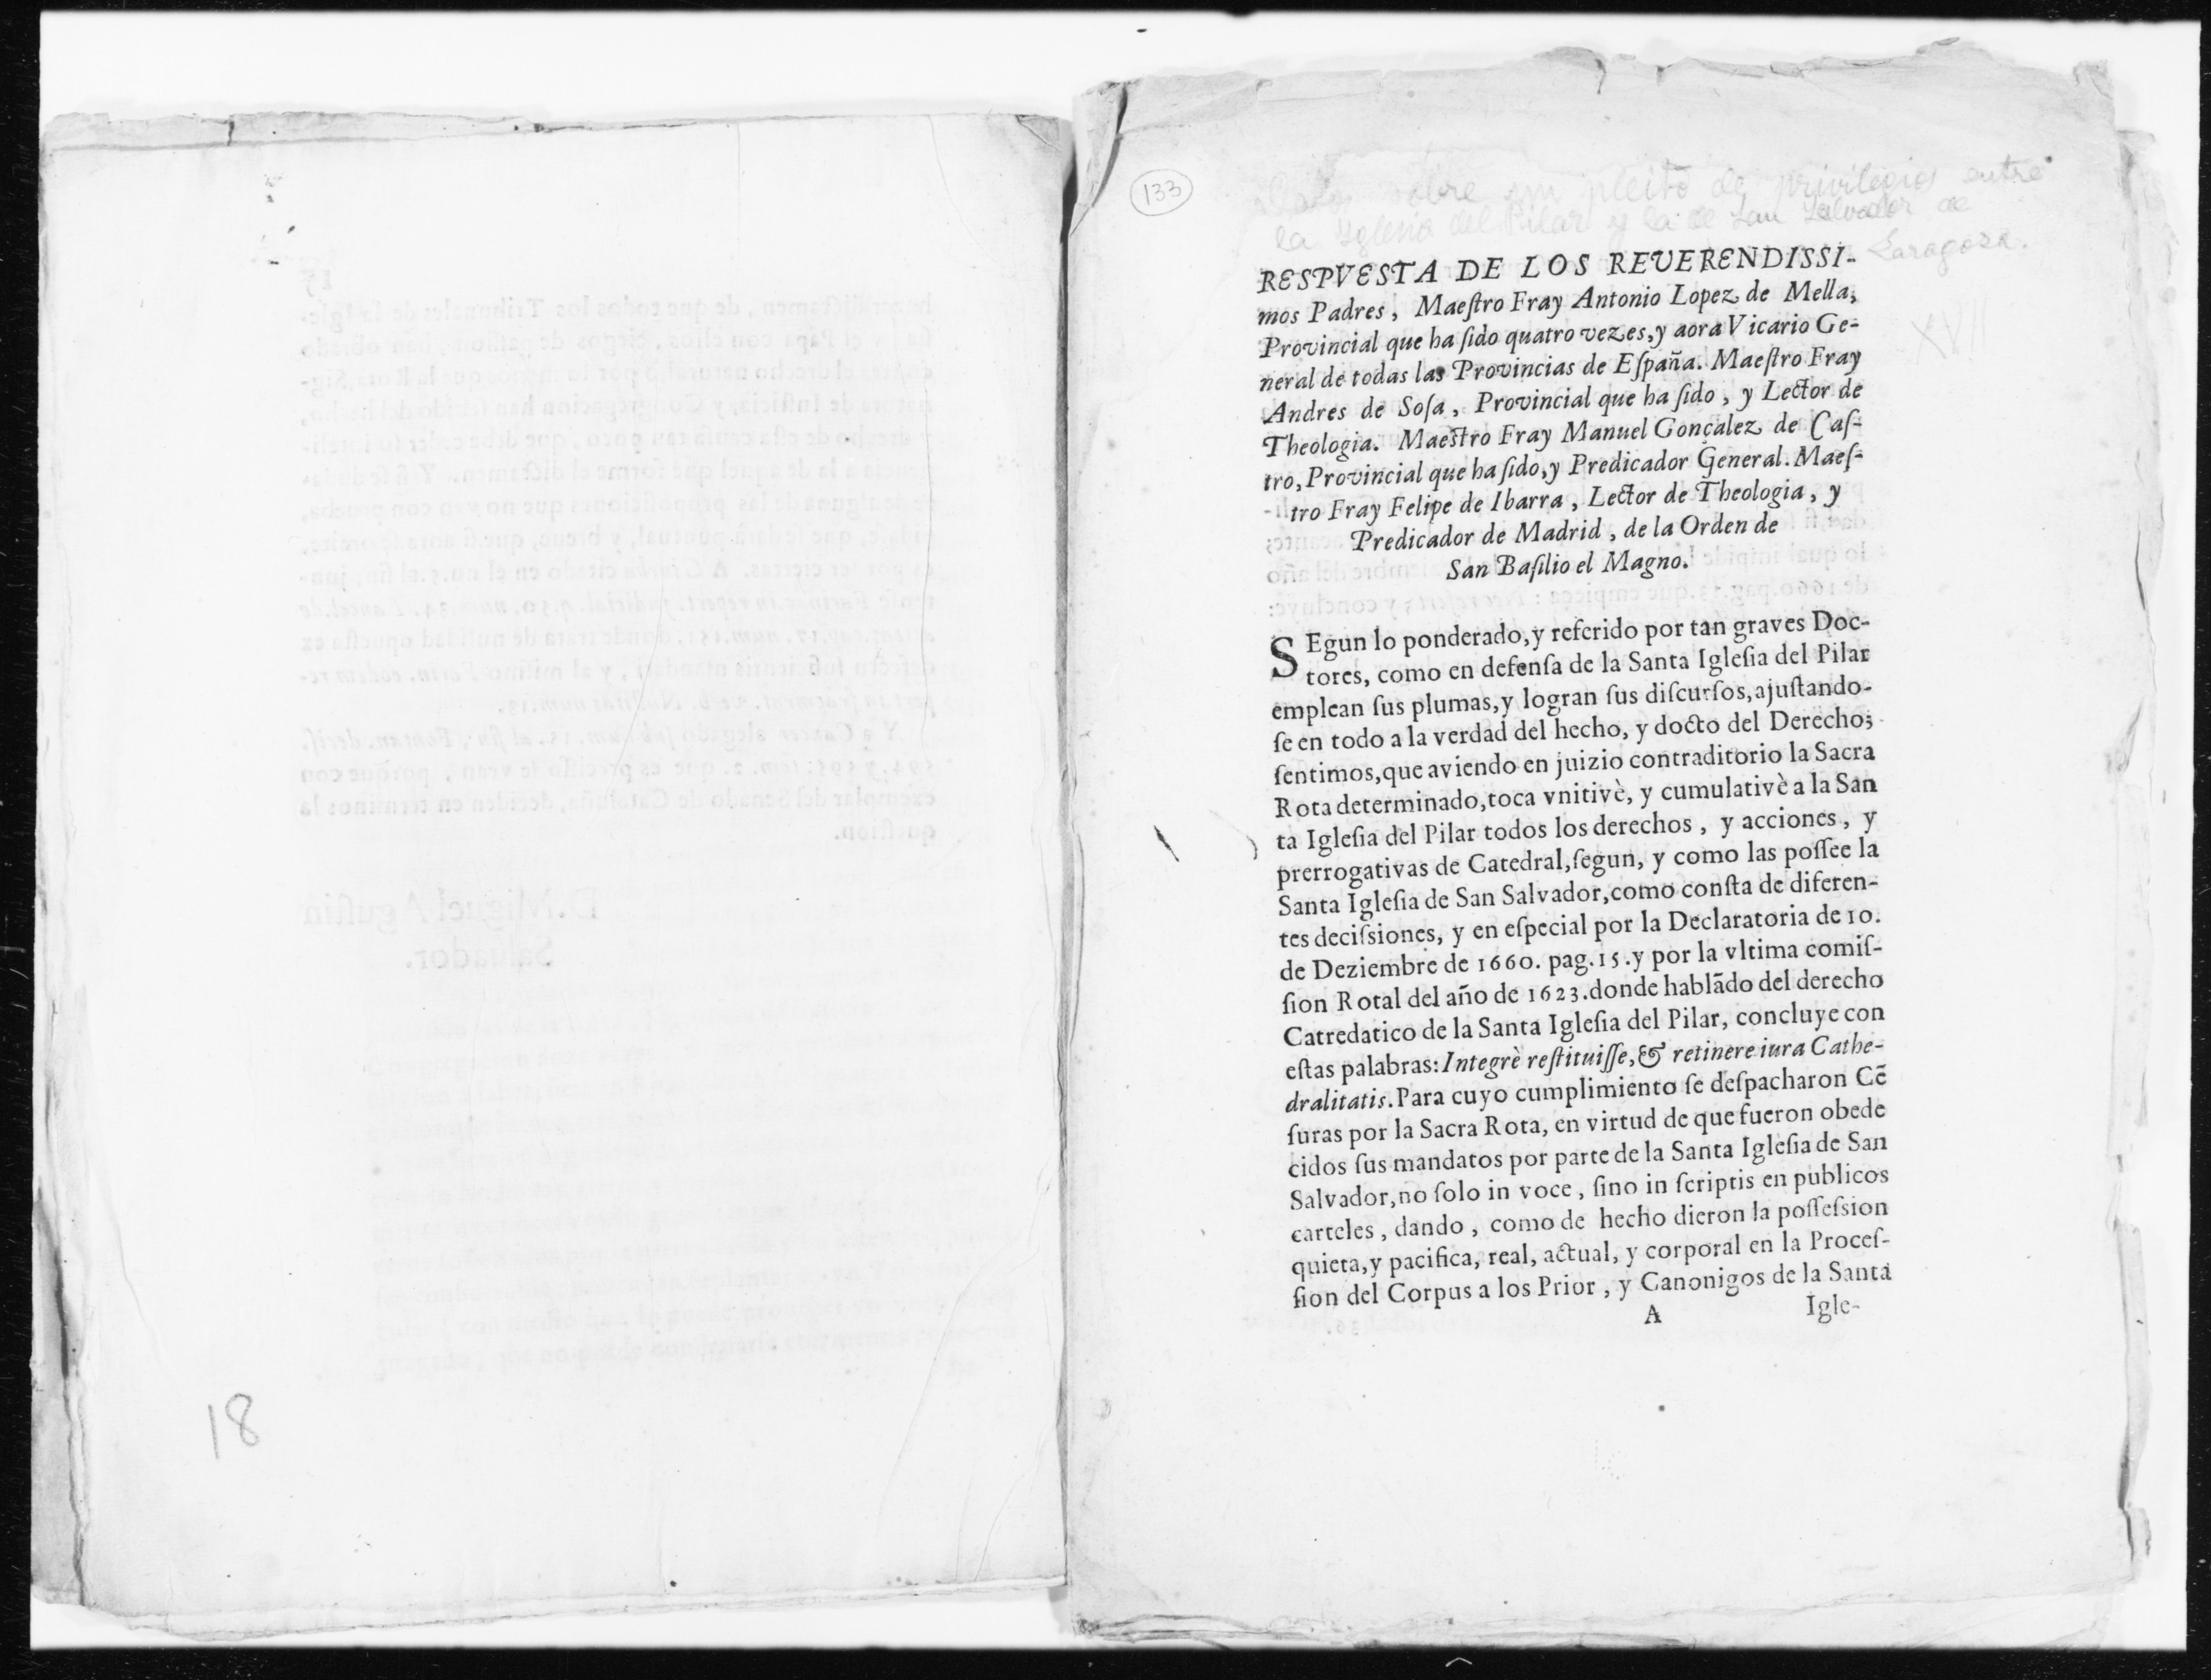 18
133
sobre un pleito de privilegios entre
la Iglesia del Pilar y la de San Salvador de
Zaragoza.
XVII
RESPVESTA DE LOS REVERENDISSI-
mos Padres, Maeſtro Fray Antonio Lopez de Mella,
Provincial que ha ſido quatro vezes, y aora Vicario Ge-
neral de todas las Provincias de Eſpaña. Maeſtro Fray
Andres de Soſa, Provincial que ha ſido, y Lector de
Theologia. Maeſtro Fray Manuel Gonçalez de Caſ-
tro, Provincial que ha ſido, y Predicador General. Maeſ-
tro Fray Felipe de Ibarra, Lector de Theologia, y
Predicador de Madrid, de la Orden de
San Baſilio el Magno.
SEgun lo ponderado, y referido por tan graves Doc-
tores, como en defenſa de la Santa Igleſia del Pilar
emplean ſus plumas, y logran ſus diſcurſos, ajuſtando-
ſe en todo a la verdad del hecho, y docto del Derecho;
ſentimos, que aviendo en juizio contraditorio la Sacra
Rota determinado, toca vnitivè, y cumulativè a la San
ta Igleſia del Pilar todos los derechos, y acciones, y
prerrogativas de Catedral, ſegun, y como las poſſee la
Santa Igleſia de San Salvador, como conſta de diferen-
tes deciſsiones, y en eſpecial por la Declaratoria de 10.
de Deziembre de 1660. pag. 15. y por la vltima comiſ-
ſion Rotal del año de 1623. donde hablãdo del derecho
Catredatico de la Santa Igleſia del Pilar, concluye con
eſtas palabras: Integrè reſtituiſſe, & retinere iura Cathe-
dralitatis. Para cuyo cumplimiento ſe deſpacharon Cẽ
ſuras por la Sacra Rota, en virtud de que fueron obede
cidos ſus mandatos por parte de la Santa Igleſia de San
Salvador, no ſolo in voce, ſino in ſcriptis en publicos
carteles, dando, como de hecho dieron la poſſeſsion
quieta, y pacifica, real, actual, y corporal en la Proceſ-
ſion del Corpus a los Prior, y Canonigos de la Santa
A Igle-